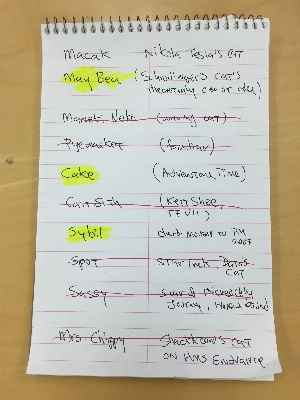 Macak Nikola Tesla's cat
May Bea (Schrodinger's cat's
theoretically
Maneki Neko cat)
Pyewacket (familiar)
Cake (Adventure Time)
Cait Sith (Kett Shee,
FF VII)
Sybil chief mouser to PM
2007
Spot Star Trek, Data's
Cat
Sassy Incredibly
Journey, Homeward Bound
Mrs Chippy Shackleton's cat
on HMS Endurance